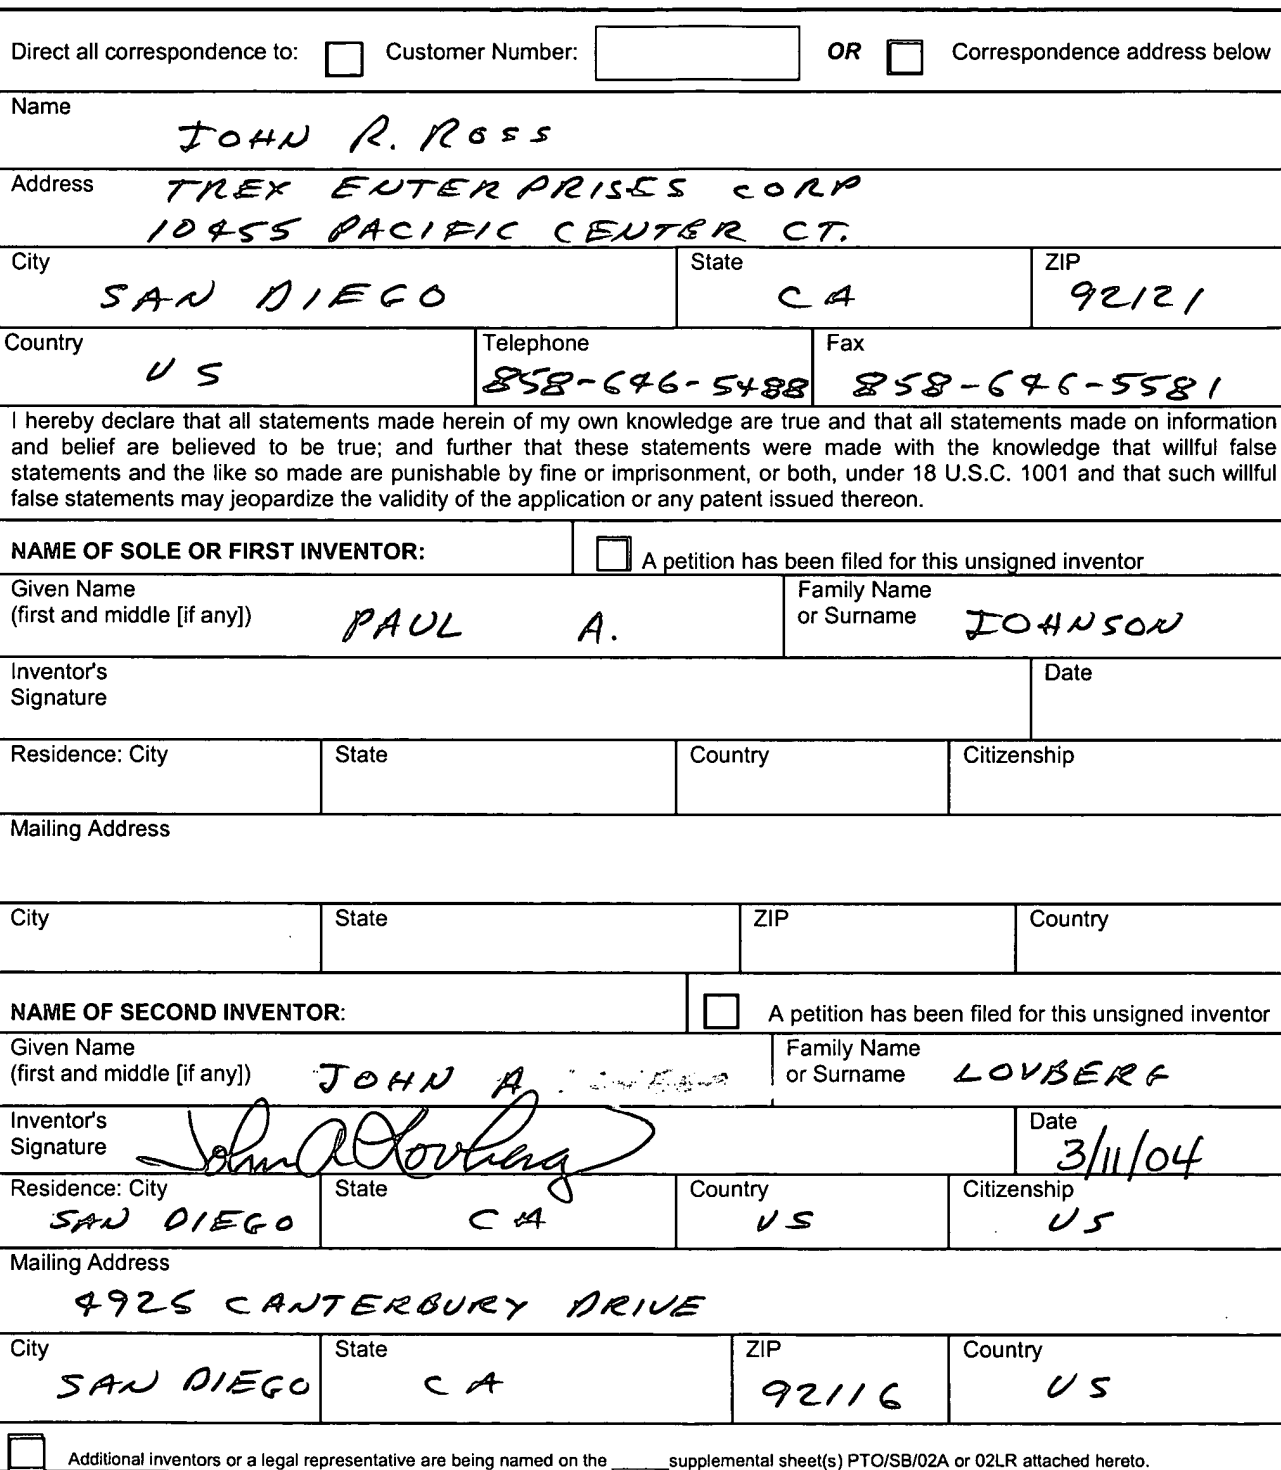 Direct all correspondence to: Customer Number: OR Correspondence address below
Name
JOHN R. ROSS
Address TREX ENTERPRISES CORP
10455 PACIFIC CENTER CT.
City State ZIP
SAN DIEGO CA 92121
Country Telephone Fax
US 858-646-5488 858-646-5581
I hereby declare that all statements made herein of my own knowledge are true and that all statements made on information
and belief are believed to be true; and further that these statements were made with the knowledge that willful false
statements and the like so made are punishable by fine or imprisonment, or both, under 18 U.S.C. 1001 and that such willful
false statements may jeopardize the validity of the application or any patent issued thereon.
NAME OF SOLE OR FIRST INVENTOR: A petition has been filed for this unsigned inventor
Given Name Family Name
(first and middle [if any]) PAUL A. or Surname JOHNSON
Inventor's Date
Signature
Residence: City State Country Citizenship
Mailing Address
City State ZIP Country
NAME OF SECOND INVENTOR: A petition has been filed for this unsigned inventor
Given Name Family Name
(first and middle [if any]) JOHN A or Surname LOVBERG
Inventor's Date
Signature John A Lovberg 3/11/04
Residence: City State Country Citizenship
SAN DIEGO CA US US
Mailing Address
4925 CANTERBURY DRIVE
City State ZIP Country
SAN DIEGO CA 92116 US
Additional inventors or a legal representative are being named on the ______supplemental sheet(s) PTO/SB/02A or 02LR attached hereto.